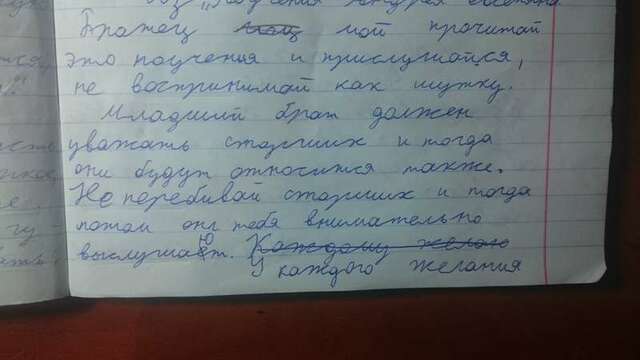 Братец мой прочитай
это поучения и прислушайся,
не воспринимай как шутку.
Младший брат должен
уважать старших и тогда
они будут относится также.
Не перебивай старших и тогда
потом они тебя внимательно
выслушают. Каждому желаю
У каждого желания